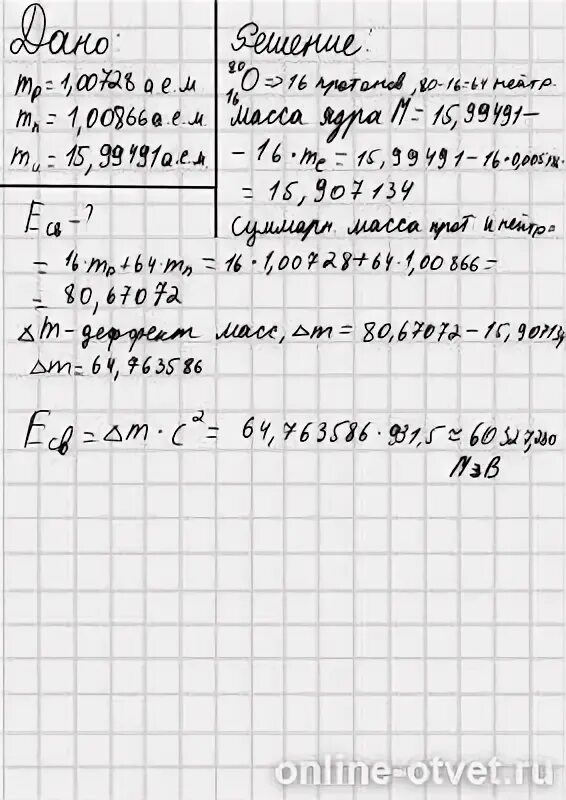 Дано:
mp = 1,00728 а.е.м
mn = 1,00866 а.е.м.
mи = 15,99491 а.е.м
Eсв - ?
Решение:
80
16 O => 16 протонов, 80-16=64 нейтр.
масса ядра M = 15,99491 -
- 16 · me = 15,99491 - 16 ·
= 15,907134
суммарн. масса прот и нейтр =
= 16 · mp + 64 · mn = 16 · 1,00728 + 64 · 1,00866 =
= 80,67072
Δm - деффект масс, Δm = 80,67072 - 15,907134
Δm = 64,763586
Eсв = Δm · c² = 64,763586 · 931,5 ≈
МэВ
online-otvet.ru